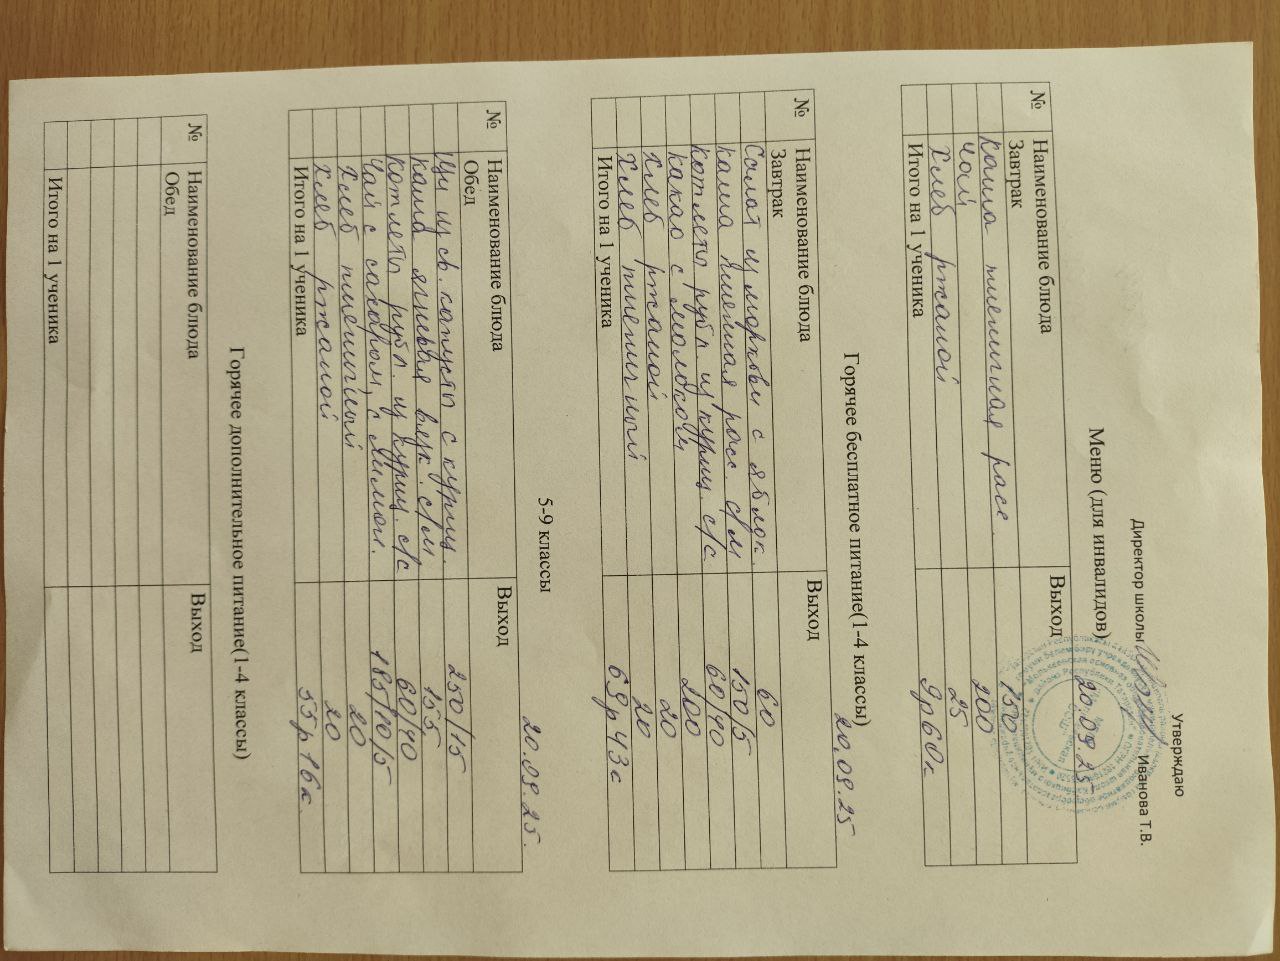 Утверждаю
Директор школы Иванова Т.В.
20.09.25
Меню (для инвалидов)
№ Наименование блюда Выход
Завтрак
Каша пшеничная расс. 150
Чай 200
Хлеб ржаной 25
Итого на 1 ученика 9р60к
20.09.25
Горячее бесплатное питание(1-4 классы)
№ Наименование блюда Выход
Завтрак
Салат из моркови с яблок. 60
Каша пшенная расс. с/м 150/5
Котлеты рубл. из куриц. с/с 60/40
Какао с молоком 200
Хлеб ржаной 20
Хлеб пшеничный 20
Итого на 1 ученика 69р43с
20.09.25.
5-9 классы
№ Наименование блюда Выход
Обед
Щи из св. капусты с куриц. 250/15
Каша ячневая вязк. с/м 155
Котлеты рубл. из куриц. с/с 60/40
Чай с сахаром, с лимон. 185/10/5
Хлеб пшеничный 20
Хлеб ржаной 20
Итого на 1 ученика 55р16к.
Горячее дополнительное питание(1-4 классы)
№ Наименование блюда Выход
Обед
Итого на 1 ученика